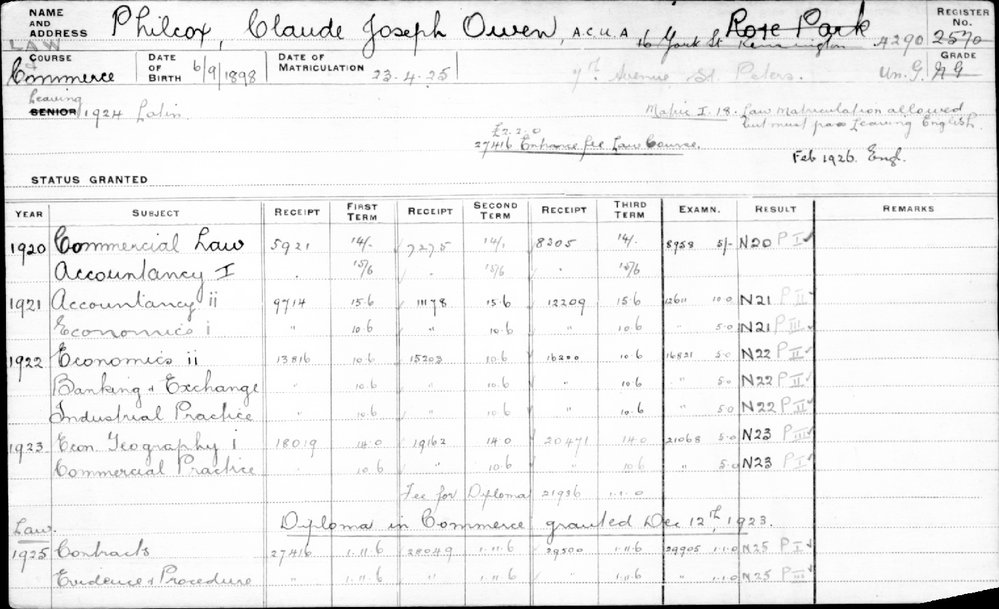 NAME AND ADDRESS Philcox, Claude Joseph Owen, A.C.U.A. 16 York St Rose Park Kensington 4290 REGISTER No. 2570
LAW
COURSE Commerce DATE OF BIRTH 6/9/1898 DATE OF MATRICULATION 23.4.25 7th Avenue St. Peters. Un.G. GRADE
Leaving
SENIOR 1924 Latin Matric I. 18. Law Matriculation allowed
but must pass Leaving English.
£2.2.0
27416 Entrance fee Law Course.
Feb 1926. Engl.
STATUS GRANTED
YEAR SUBJECT RECEIPT FIRST TERM RECEIPT SECOND TERM RECEIPT THIRD TERM EXAMN. RESULT REMARKS
1920 Commercial Law 5921 14/- 7275 14/- 8205 14/- 8958 5/- N20 P I ✓
Accountancy I . 15/6 . 15/6 . 15/6
1921 Accountancy ii 9714 15.6 11178 15.6 12209 15.6 12611 10.0 N21 P II ✓
Economics i " 10.6 " 10.6 " 10.6 " 5.0 N21 P III ✓
1922 Economics ii 13816 10.6 15203 10.6 16200 10.6 16821 5.0 N22 P II ✓
Banking & Exchange " 10.6 " 10.6 " 10.6 " 5.0 N22 P II ✓
Industrial Practice " 10.6 " 10.6 " 10.6 " 5.0 N22 P II ✓
1923 Econ. Geography i 18019 14.0 19162 14.0 20471 14.0 21068 5.0 N23 P III ✓
Commercial Practice " 10.6 " 10.6 " 10.6 " 5.0 N23 P I ✓
Fee for Diploma 21936 1.1.0
Law. Diploma in Commerce granted Dec 12th, 1923.
1925 Contracts 27416 1.11.6 28049 1.11.6 29500 1.11.6 29905 1.1.0 N25 P I ✓
Evidence & Procedure " 1.11.6 " 1.11.6 " 1.11.6 " 1.1.0 N25 P III ✓